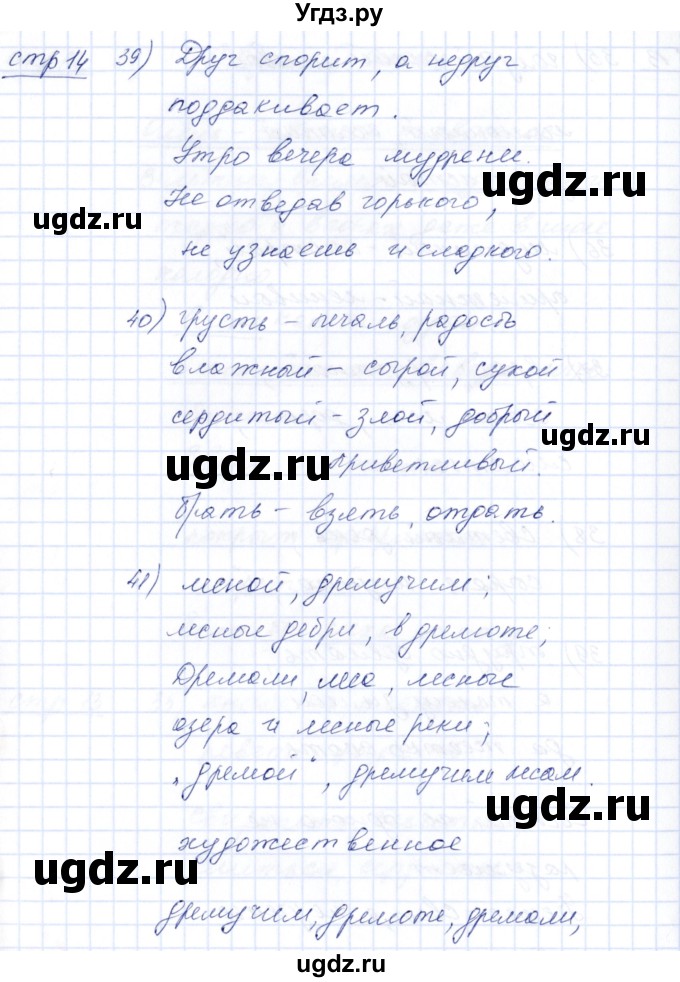 Угдз.ру
стр 14 39) Друг спорит, а недруг
поддакивает.
Утро вечера мудрени.
ugdz.ru
ugdz.ru
Не отведав горького,
не узнаешь и сладкого.
40) грусть – печаль, радость
влажный – сырой, сухой
сердитый – злой, добрый
ugdz.ru
ugdz.ru
приветливый.
брать – взять, отдать.
41) лесной, дремучим;
лесные дебри, в дремоте;
Дремали, леса, лесные
ugdz.ru
озера и лесные реки;
„дремой“, дремучим лесам.
ugdz.ru
художественное
ugdz.ru
дремучим, дремоте, дремали,
ugdz.ru